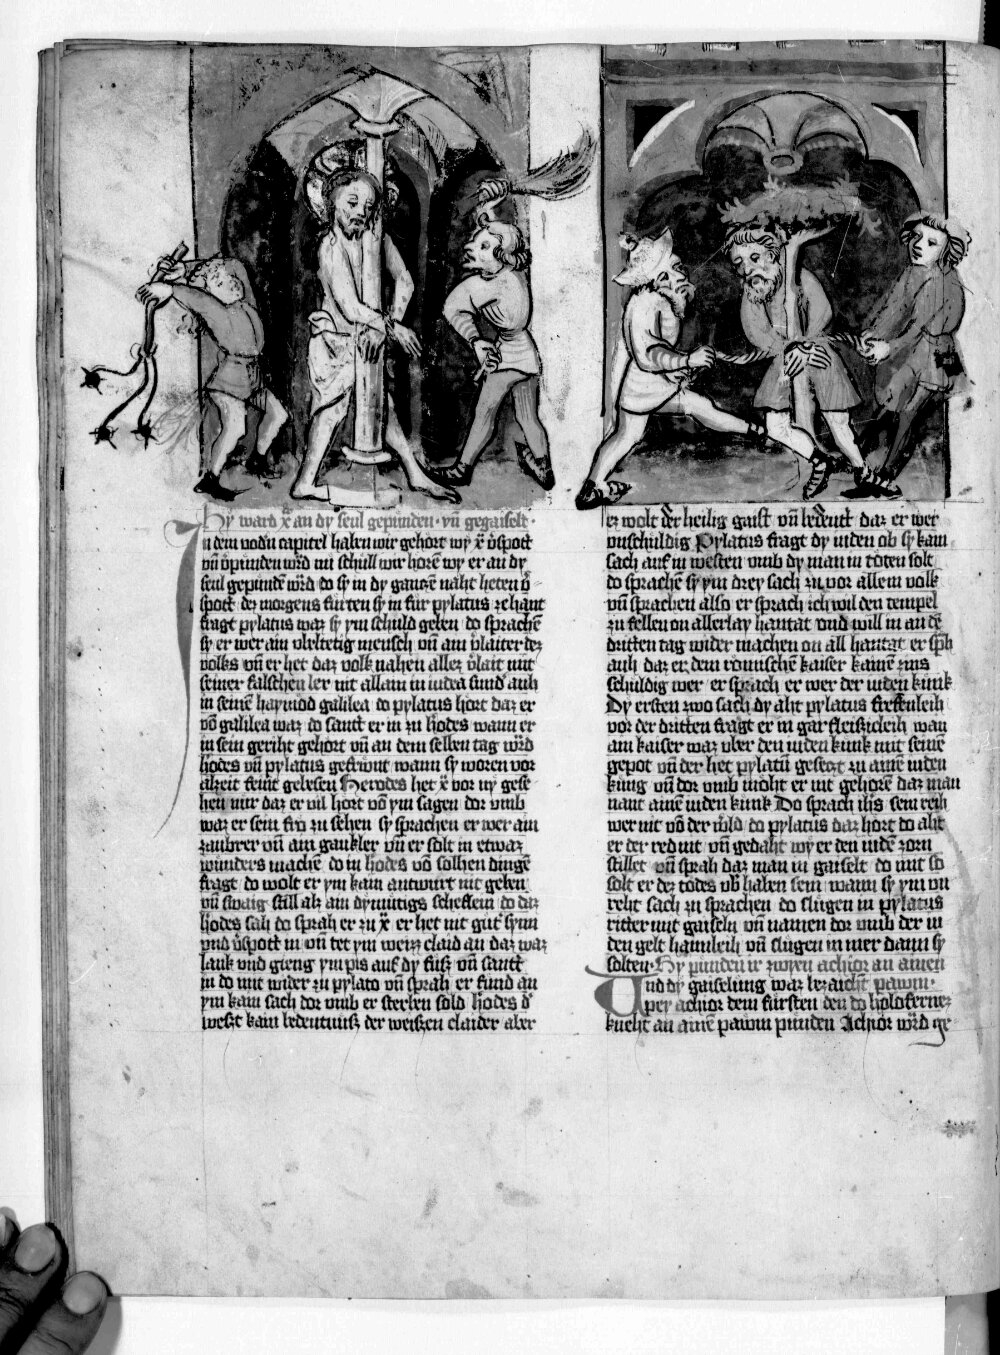 Hy ward x̄ an dy seul gepunden · vn̄ gegaiselt ·
In dem vodn̄ capitel haben wir gehort wy x̄ v̄spott
vn̄ v̄punden wrd nu schull wir horē wy er an dy
seul gepundē wrd do sy in dy gantzē naht heten v̄
spott dez morgens furten sy in fur pylatus zehant
fragt pylatus waz sy ym schuld geben do sprachē
sy er wer ain mensch vn̄ ain v̄laiter dez
volks vn̄ er het daz volk nahen allez v̄lait mit
seiner falschen ler nit allain in iudea sund auh
in seinē haymod galilea do pylatus hort daz er
vō galilea waz do santt er in zu hodes wann er
in sein geriht gehort vn̄ an dem selben tag wrd
hodes vn̄ pylatus gefrunt wann sy woren vor
alzeit feint gelesen Herodes het x̄ vor ny gese
hen nur daz er vil hort vō ym sagen dor vmb
waz er sein fro zu sehen sy sprachen er wer ain
zaubrer vn̄ ain gaukler vn̄ er solt in etwaz
wunders machē do in hodes vō solhen dingē
fragt do wolt er ym kain antwurt nit geben
vn̄ swaig still alz ain dymutigs scheflein do daz
hodes sah do sprah er zu x̄ er het nit gut synn
vnd v̄spott in vn̄ tet ym weizz claid an daz waz
lank vnd gieng ym pis auf dy fuzz vn̄ santt
in do mit wider zu pylato vn̄ sprah er fund an
ym kain sach dor vmb er sterben sold hodes d
west kain bedeutnuss der weissen claider aber
er wolt der heilig gaist vn̄ bedeutt daz er wer
vnschuldig Pylatus fragt dy iuden ob sy kain
sach auf in westen vmb dy man in toten solt
do sprachē sy ym drey sach zu vor allem volk
vn̄ sprachen also er sprach ich wil den tempel
zu fellen on allerlay hantat vnd will in an dē
dritten tag wider machen on all hantat er sph
auh daz er dem romischē kaiser kainē zins
schuldig wer er sprach er wer der iuden kunk
Dy ersten zwo sach dy aht pylatus freffenleih
vor der dritten fragt er in gar fleizzicleih wan
ain kaiser waz vber den iuden kunk mit seinē
gepot vn̄ der het pylatū gesetzt zu ainē iuden
kung vn̄ dor vmb moht er nit gehorē daz man
nant ainē iuden kunk Do sprach ihs sein reih
wer nit vō der w̄ld do pylatus daz hort do aht
er der red nit vn̄ gedaht wy er den iudē zorn
stillet vn̄ sprah daz man in gaiselt do mit so
solt er dez todes vb haben sein wann sy ym vn
reht sach zu sprachen do slugen in pylatus
ritter mit gaiseln vn̄ namen dor vmb der iu
den gelt haimleih vn̄ slugen in mer dann sy
solten · Hy punden ir zwyen achior an ainen
Vnd dy gaiselung waz bezaicht pawm ·
pey achior dem fursten den do holofernez
kneht an ainē pawm punden Achior wrd ge